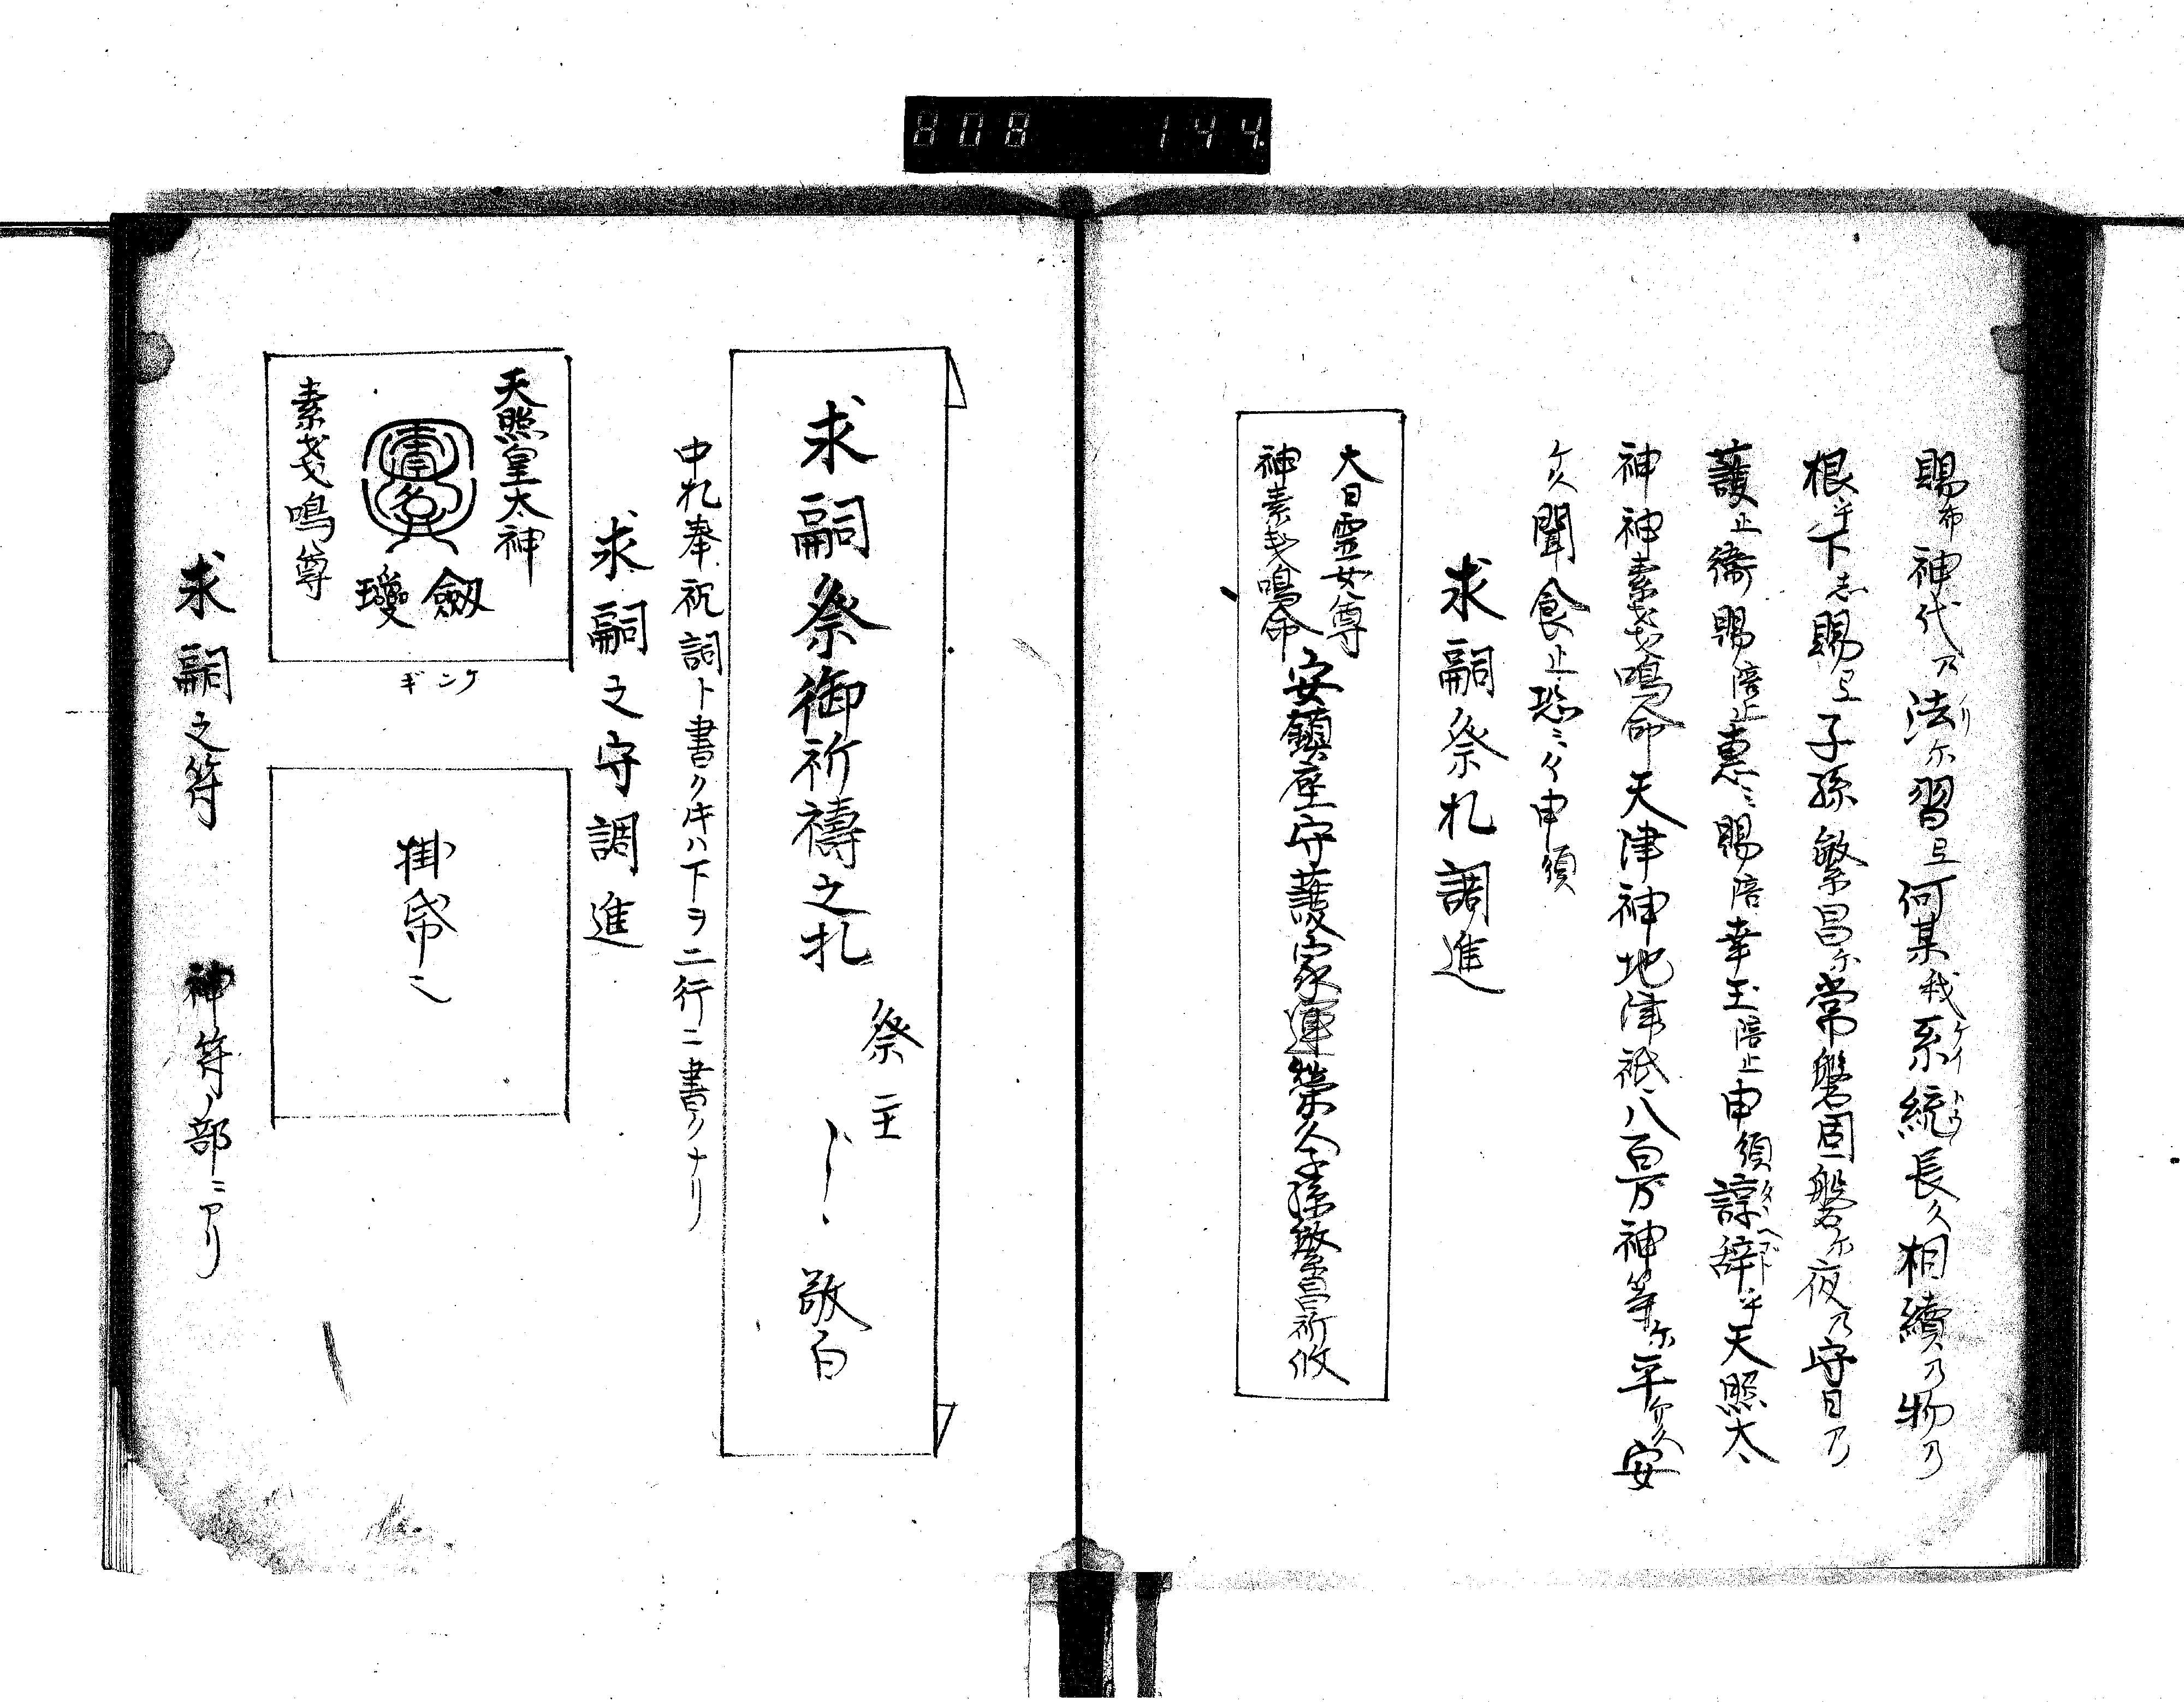 808 144.
賜布神代乃法尓習旦何某我系統長久相續乃物乃
リ
ケイトウ
根乎下志賜旦子孫繁昌尓常磐固磐尓夜乃守日乃
護止衛賜陪止恵ミ賜陪幸玉陪止申須諄辞乎天照太
神神素戔嗚命天津神地津祇八百万神等尓平介久安
介久聞食止恐ミ申須
求嗣祭札調進
大日霊女尊
神素戔嗚命
安鎮座守護家運榮久子孫繁昌祈攸
求嗣祭御祈禱之札
祭主
敬白
中札奉祝詞ト書ク片ハ下ヲ二行ニ書クナリ
求嗣之守調進
天照皇太神
劔
瓊
素戔嗚尊
ケンギ
掛帋ニ
求嗣之符 神符ノ部ニアリ